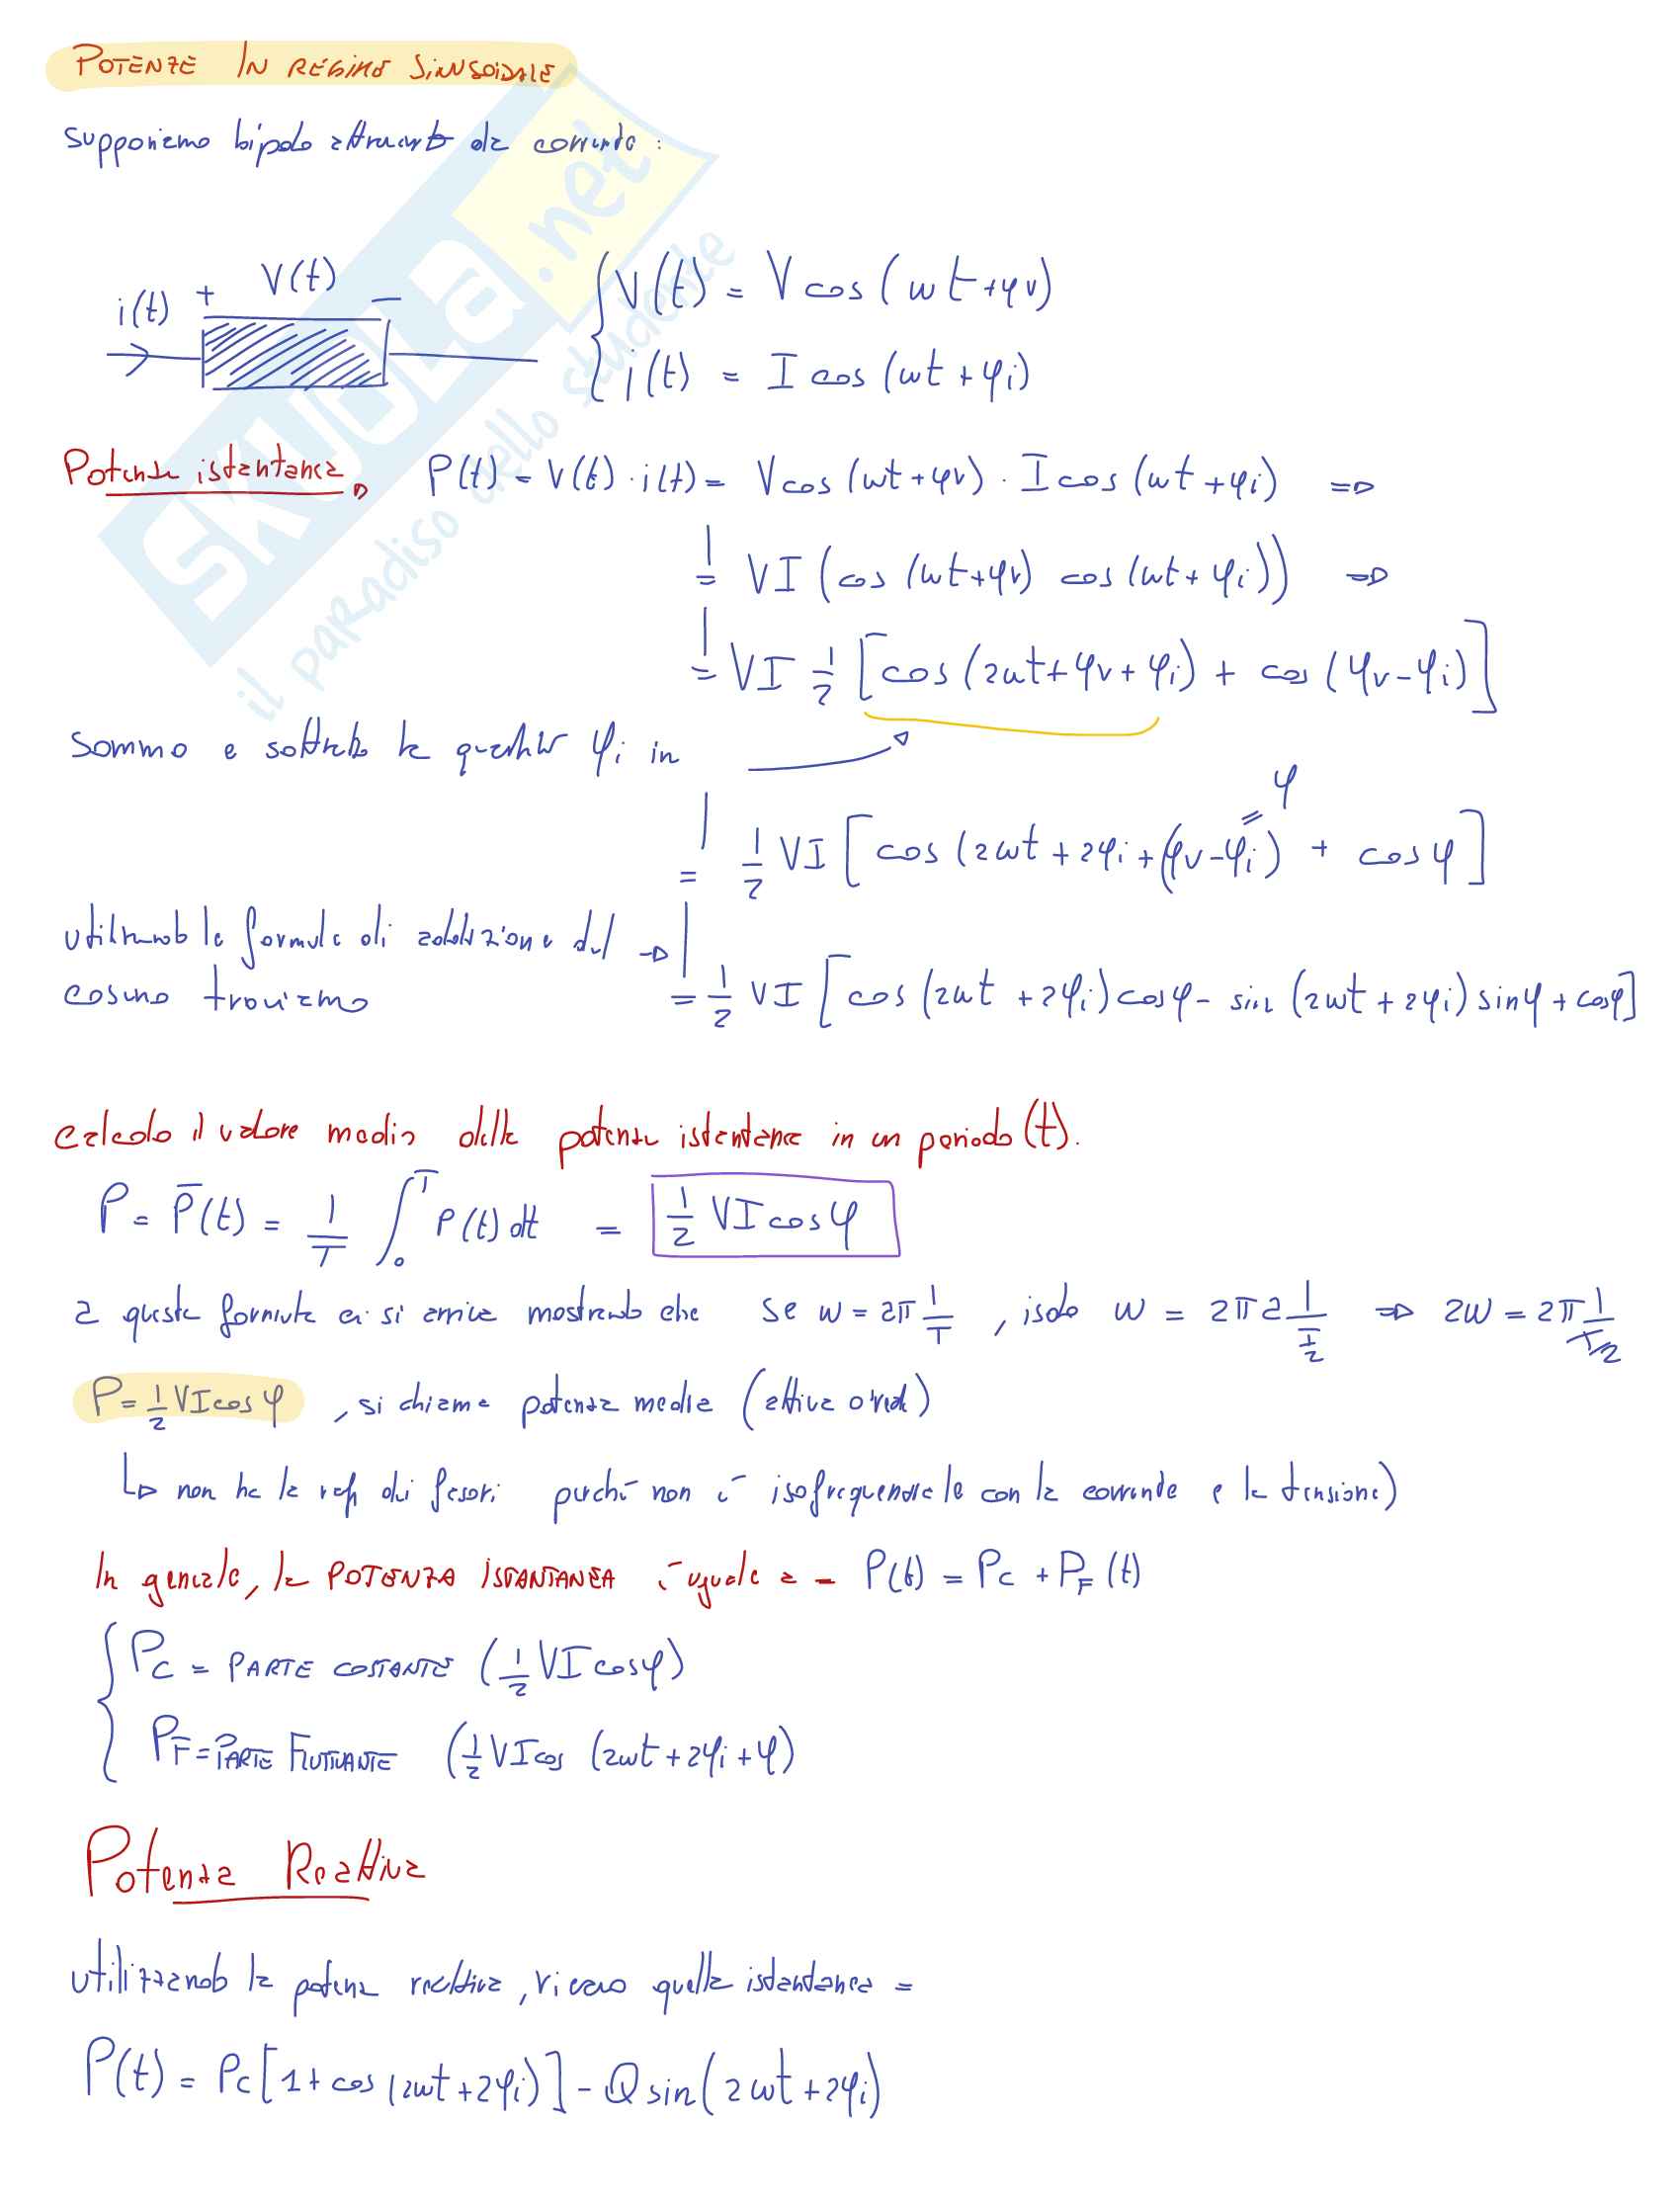 POTENZE IN REGIME SINUSOIDALE
supponiamo bipolo attraversato da corrente :
i(t) + V(t) −
V(t) = V cos (ωt+φv)
i(t) = I cos (ωt+φi)
Potenza istantanea P(t) = V(t) · i(t) = V cos (ωt+φv) · I cos (ωt+φi) =>
= VI (cos (ωt+φv) cos (ωt+φi)) =>
= VI 1/2 [cos (2ωt+φv+φi) + cos (φv-φi)]
Sommo e sottratto la quantità φi in
φ
= 1/2 VI [cos (2ωt+2φi+(φv-φi) + cos φ]
utilizzando la formula di addizione del →
coseno troviamo
= 1/2 VI [cos (2ωt +2φi) cosφ - sin (2ωt+2φi) sinφ + cosφ]
calcolo il valore medio della potenza istantanea in un periodo (t).
P = P̄(t) = 1/T ∫₀ᵀ P(t) dt = 1/2 VI cos φ
a questa formula ci si arriva mostrando che se ω = 2π 1/T , isolo ω = 2π 2 1/(T/2) => 2ω = 2π 1/(T/2)
P = 1/2 VI cos φ , si chiama potenza media (attiva o reale)
non ha la rapp dei fasori perché non è isofrequenziale con la corrente e la tensione)
In generale, la POTENZA ISTANTANEA è uguale a = P(t) = Pc + PF (t)
Pc = PARTE COSTANTE (1/2 VI cosφ)
PF = PARTE FLUTTUANTE (1/2 VI cos (2ωt+2φi+φ)
Potenza Reattiva
utilizzando la potenza reattiva, ricavo quella istantanea =
P(t) = Pc [1+cos (2ωt+2φi)] - Q sin (2ωt+2φi)
SKUOLA.net
il paradiso dello studente